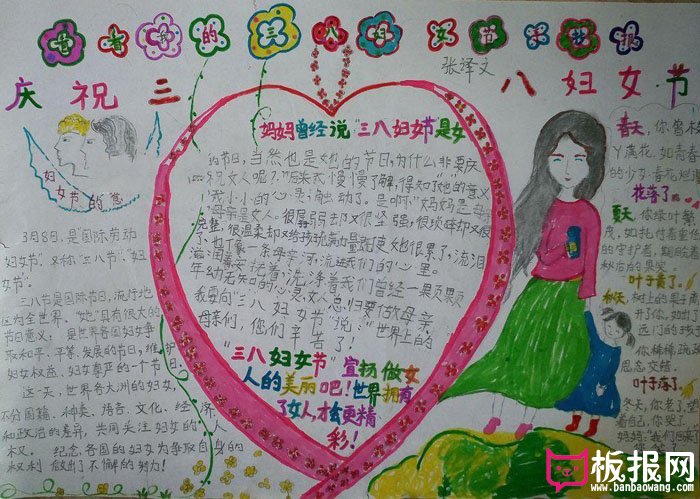 的三八妇女节手抄报
张泽文
庆祝三八妇女节
妇女节的意
3月8日,是"国际劳动
妇女节".又称"三八节""妇
女节".
三八节是国际节日,流行地
区为全世界,"她"具有很大的
节日意义:是世界各国妇女争
取和平、平等、发展的节日,维护
妇女权益、妇女尊严的一个节日.
这一天,世界各大洲的妇女,
不分国籍、种卖、语言、文化、经济
和政治的差异,共同关注妇女的人
权. 纪念各国的妇女为争取自身的
权利做出了不懈的努力!
妈妈曾经说"三八妇女节"是女
的节日,当然也是女他的节日,为什么非要庆
祝女人呢?"后来我慢慢了解,得知了她的意义
我小小的心灵触动了.是啊!"妈妈是母
母亲是女人。很脆弱却又很坚强,很琐碎却又很
完整,很温柔却又给孩
也了像一条母亲河,流进我们的心里。
我要向"三八妇女节"说:"世界上的
母亲们,您们辛苦了!
"三八妇女节"宣扬做女
人的美丽吧!世界拥有
了女人,才会更精
彩!
春天,你曾木
丫蔑花,如青春
的少女.春花烂漫
花落了.
夏天,你绿叶繁
茂,如托付着生
的守护者,期盼着
秋后的果实.
叶子黄了.
秋天,树上的果子
开你,如打
远门的孩
你稀稀疏疏
思恋交错.
叶子落了.
冬天,你老了,
着自己,你哭了.
妈妈:我们回
板报网
www.banbaowang.com